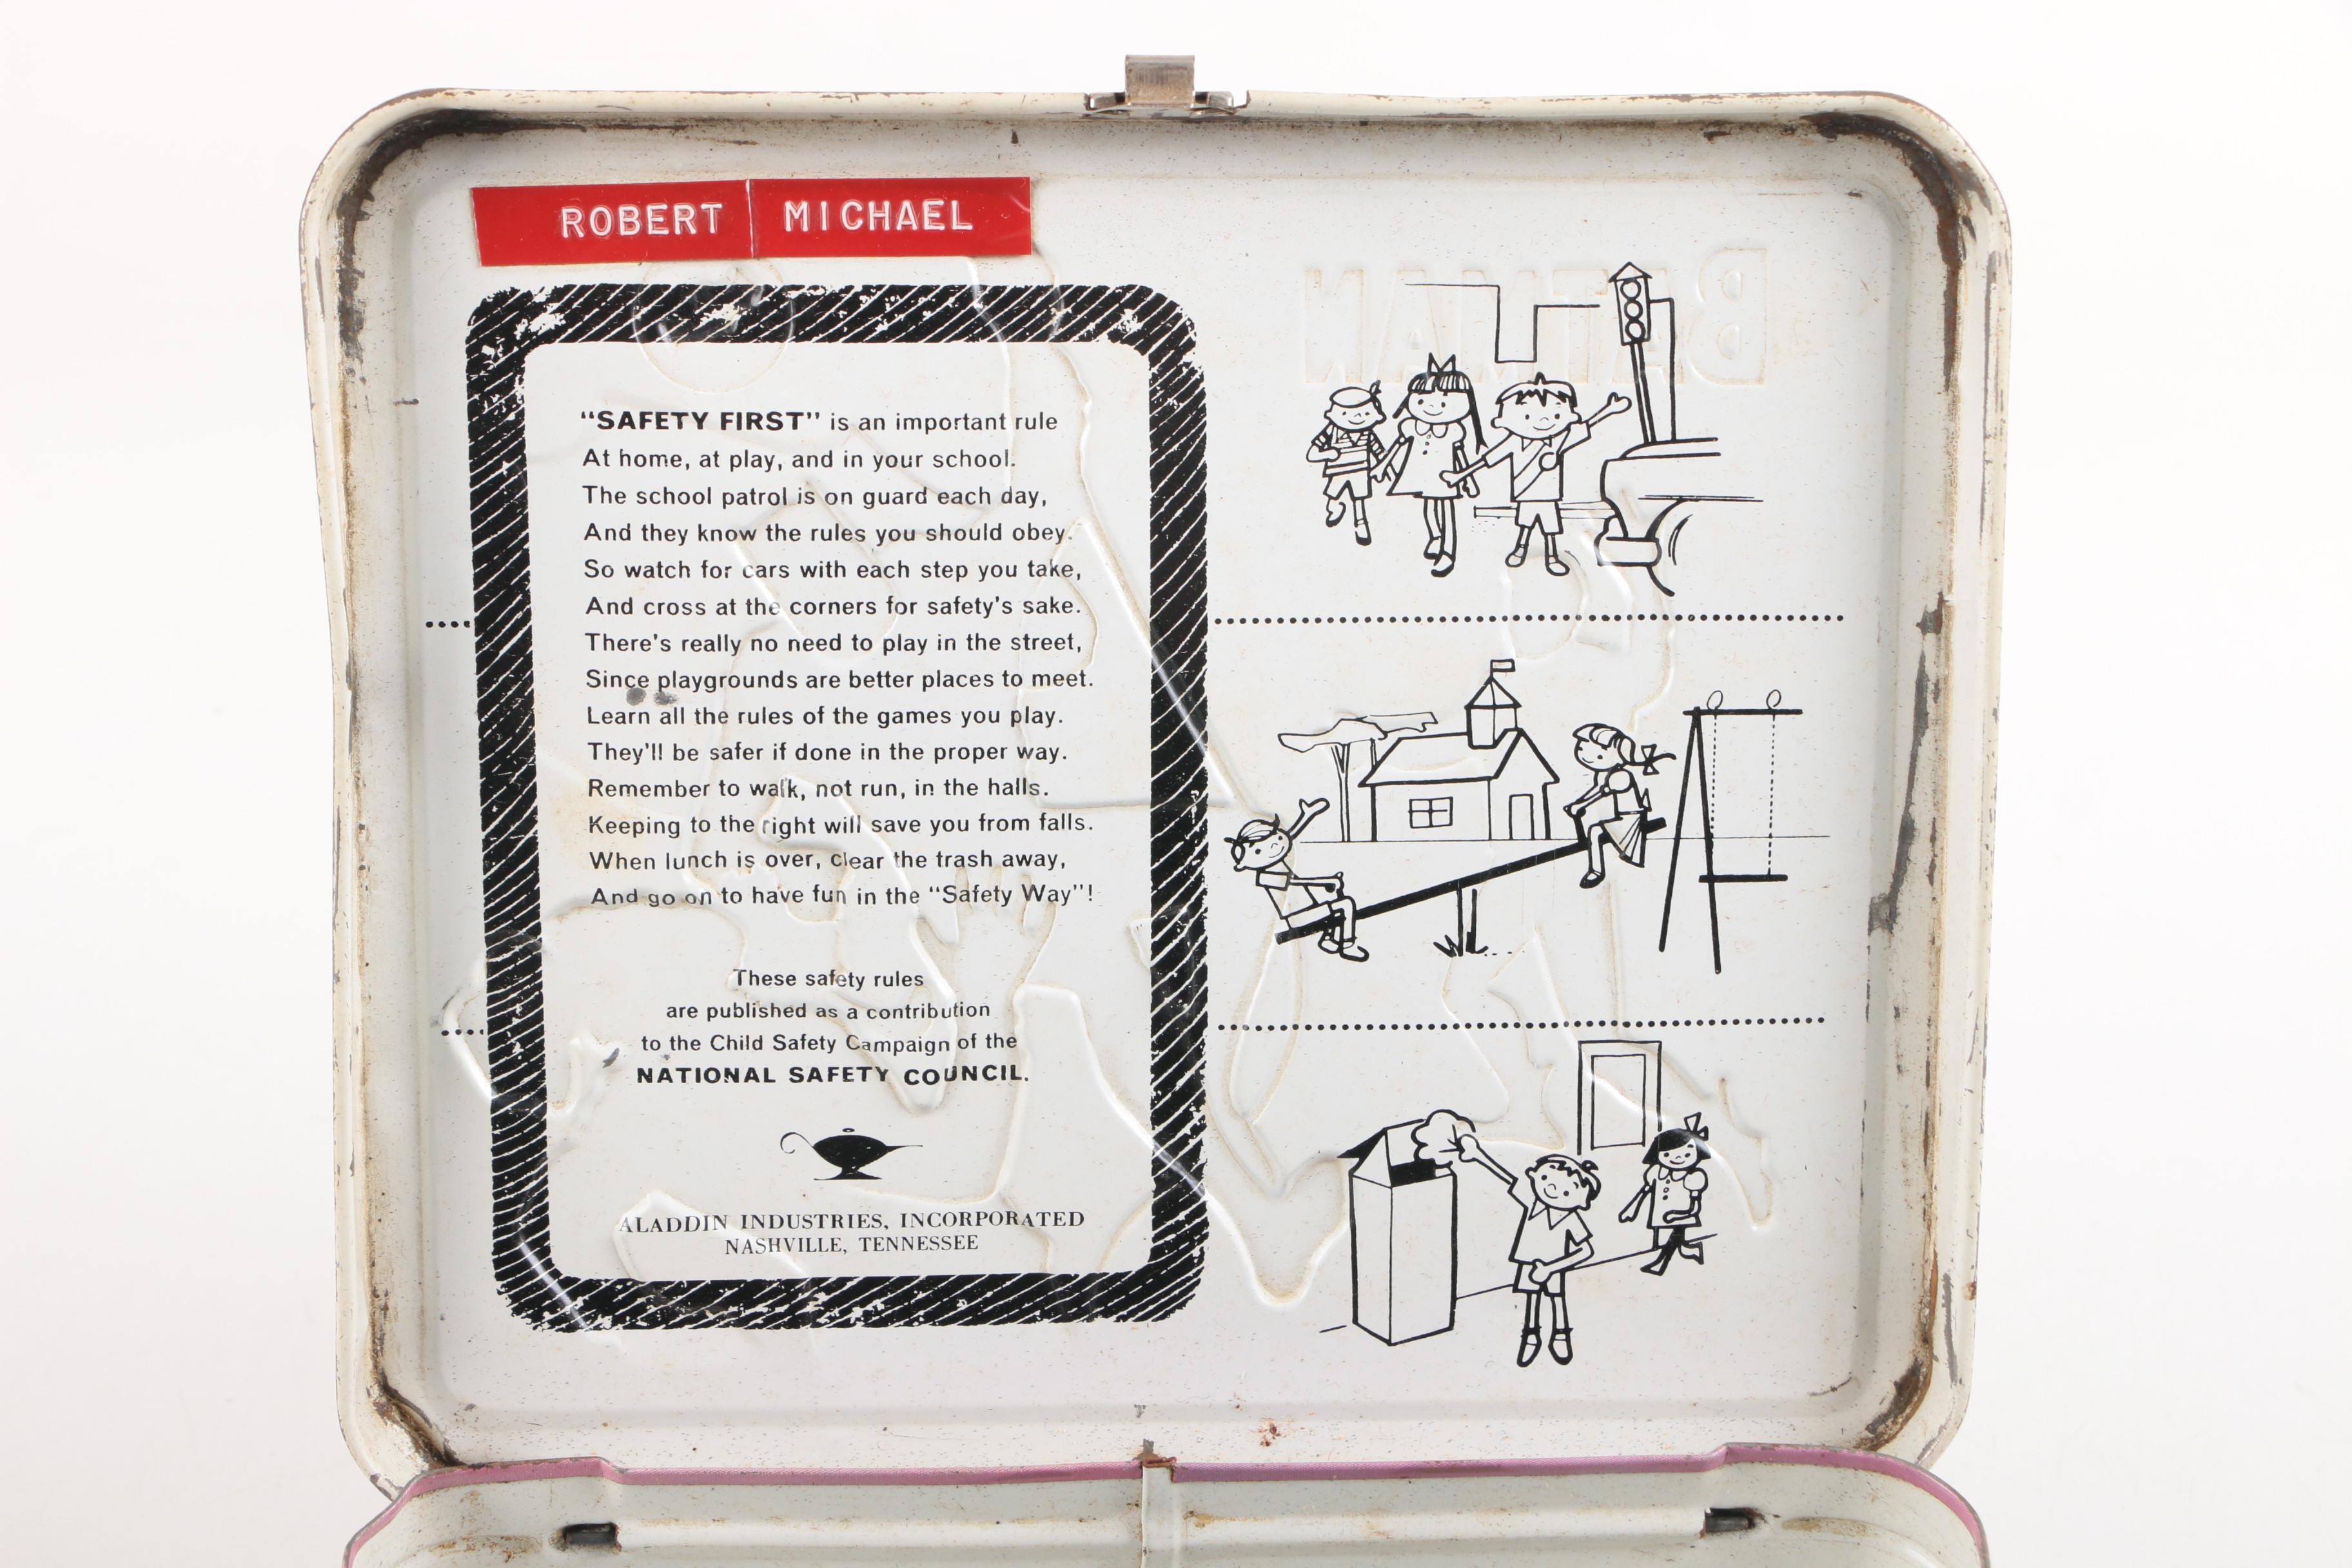 ROBERT MICHAEL
BATMAN
“SAFETY FIRST” is an important rule
At home, at play, and in your school.
The school patrol is on guard each day,
And they know the rules you should obey.
So watch for cars with each step you take,
And cross at the corners for safety's sake.
There's really no need to play in the street,
Since playgrounds are better places to meet.
Learn all the rules of the games you play.
They'll be safer if done in the proper way.
Remember to walk, not run, in the halls.
Keeping to the right will save you from falls.
When lunch is over, clear the trash away,
And go on to have fun in the “Safety Way”!
These safety rules
are published as a contribution
to the Child Safety Campaign of the
NATIONAL SAFETY COUNCIL.
ALADDIN INDUSTRIES, INCORPORATED
NASHVILLE, TENNESSEE